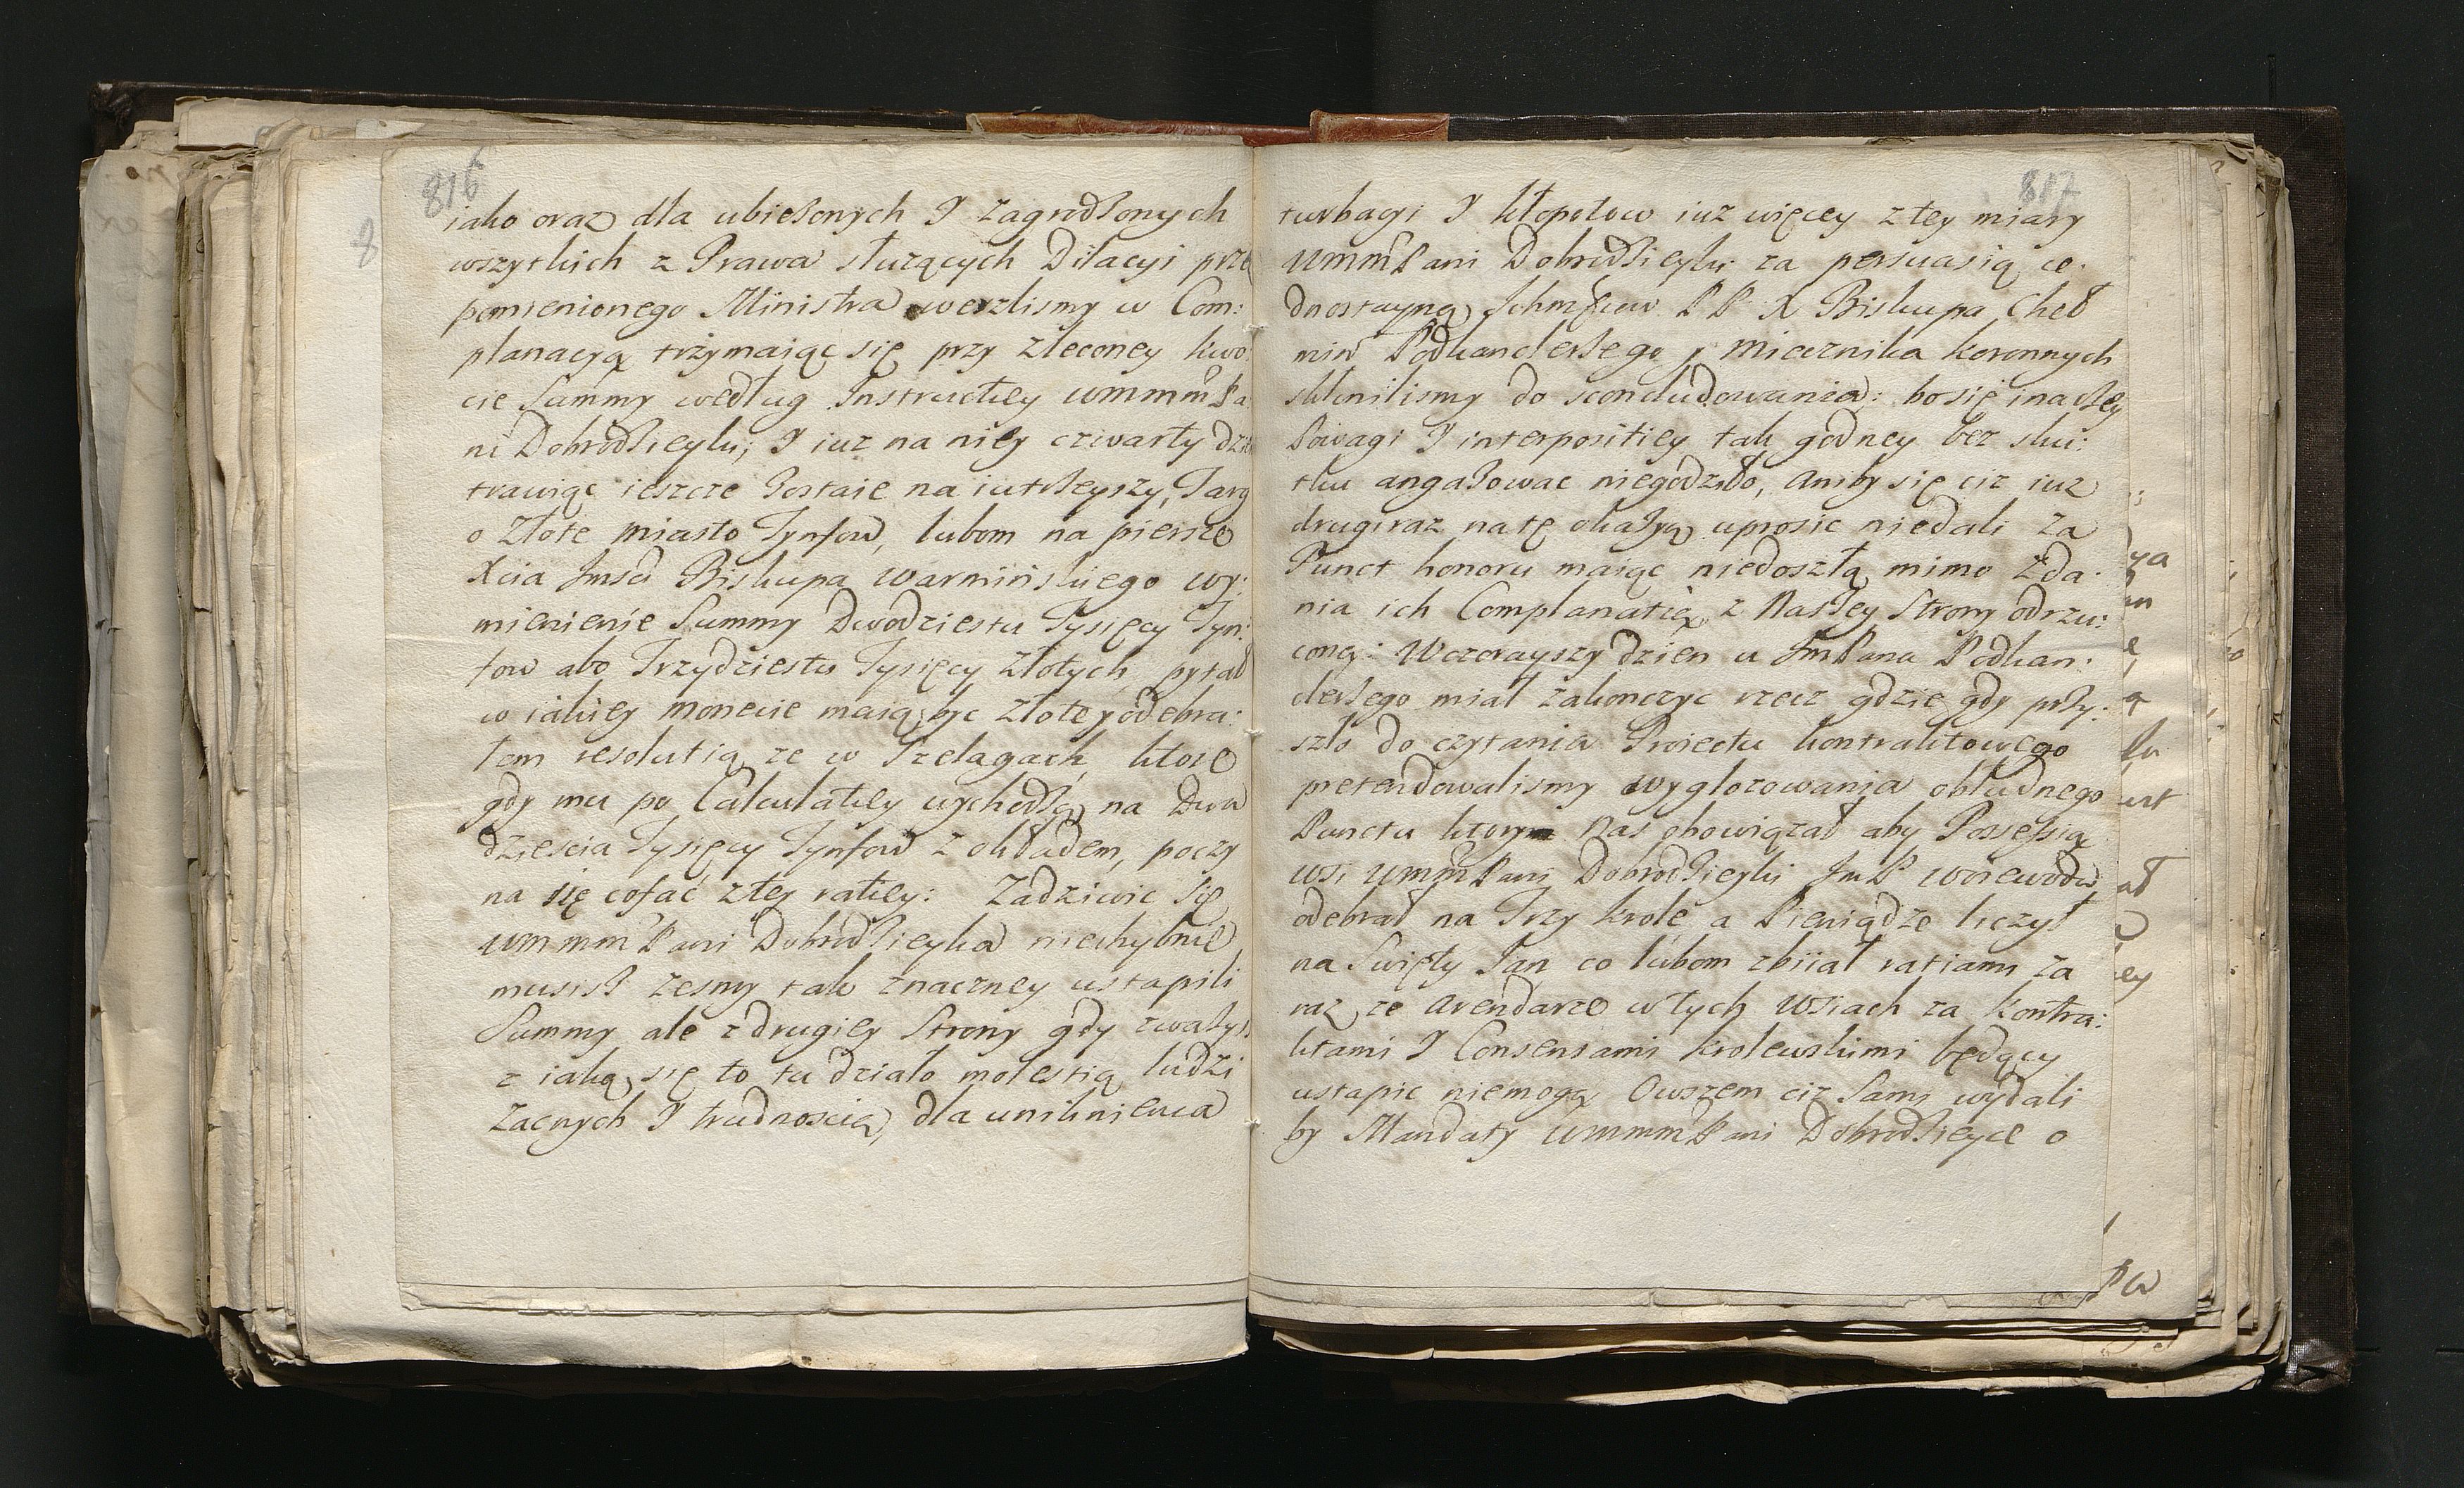 816
iako oraz dla ubieżonych I zagrodzonych
wszytkich z Prawa służących Dilacyi prze
pomienionego Ministra weszlismy w Com:
planacyą trzymaiąc się przy zleconey kwo:
cie Summy według Instructiey WMMMPa
ni Dobrodzieyki; I iuz na niey czwarty dzi
trawiąc ieszcze Zostaie na iutrzeyszy, Targ
o złote miasto Tynfow, lubom na pierwsze
Xcia Jmsci Biskupa Warminskiego wy:
mienienie Summy Dwodziestu Tysięcy Tyn:
fow abo Trzydziestu Tysięcy złotych pytał
w iakiey monecie maią byc złote y odebra:
łem resolutią ze w Szelagach, ktore
gdy mu po Calculatiey wychodzą na Dwa
dziescia Tysięcy Tynfow z okładem, poczy
na się cofać z tey ratiey: Zadziwic Się
WMMMPani Dobrodzieyka niechybnie
musisz zesmy tak znaczney ustąpili
Summy ale z drugiey Strony gdy zwazysz
z iaką się to tu działo molestią ludzi
Zacnych I trudnoscią, dla uniknienia
817
turbacyi I kłopotow iuz więcey z tey miary
WMMMPani Dobrodzieyki za persuasią ie:
dnostayną Ichmsciow PP X Biskupa Cheł
min Podkanclerzego y Miecznika koronnych
skłonilismy do sconcludowania: bo się inaczey
Powagi I interpositiey tak godney bez sku:
tku angażować niegodziło, aniby się ciz iuz
drugi raz na tę okazyą uprosic niedali za
Punct honoru maiąc niedoszłą mimo zda:
nia ich Complanatią z Naszey Strony odrzu:
coną: Wczorayszy dzien u JmPana Podkan:
clerzego miał zakonczyc rzecz gdzie gdy przy:
szło do czytania Proiectu kontraktowego
pretendowalismy wyglozowania obłudnego
Punctu ktorym nas obowiązał aby Possessią
Wsi WMMMPani Dobrodzieyki JmP Woiewoda
odebrał na Trzy krole a Pieniądze liczył
na Swięty Jan co lubom zbiiał ratiami za
raz, ze Arendarze w tych Wsiach za kontra:
ktami I Consensami krolewskimi będący
ustąpic niemogą Owszem ciz Sami wydali
by Mandaty WMMMPani Dobrodzieyce o